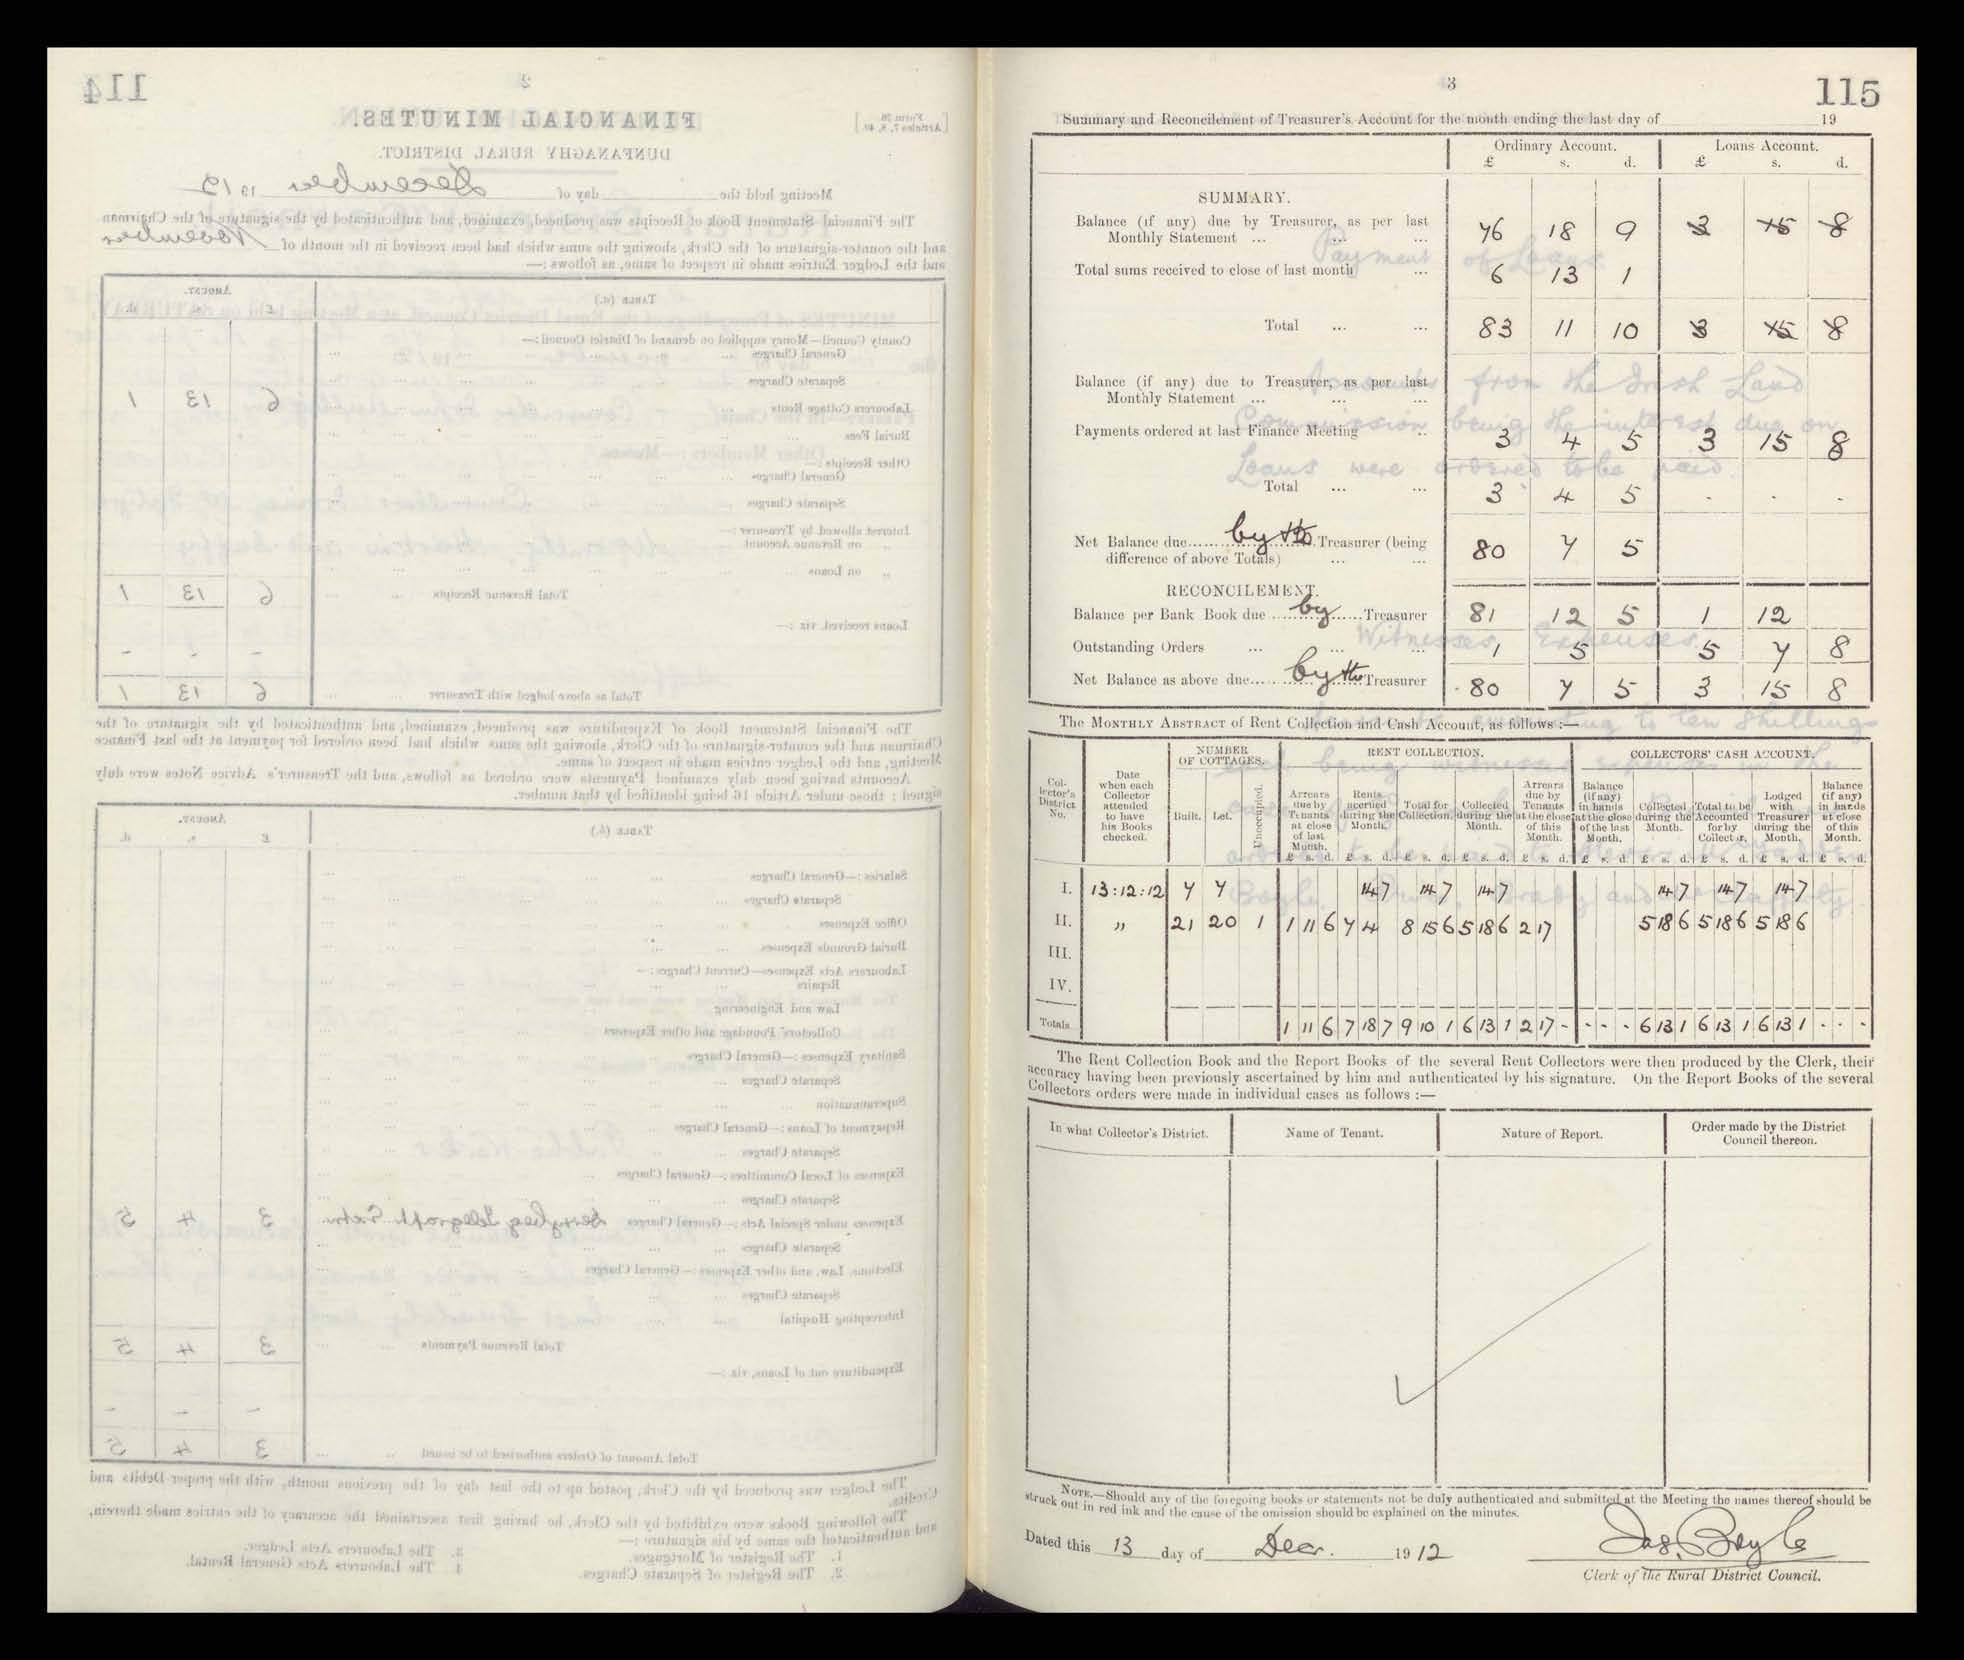 114
2
FINANCIAL MINUTES.
[Form 26. Articles 7, 8, 40.]
DUNFANAGHY RURAL DISTRICT.
Meeting held the day of December 1912
The Financial Statement Book of Receipts was produced, examined, and authenticated by the signature of the Chairman
and the counter-signature of the Clerk, showing the sums which had been received in the month of November
and the Ledger Entries made in respect of same, as follows :—
TABLE (a.) AMOUNT.
£ s. d.
County Council—Money supplied on demand of District Council :—
General Charges
Separate Charges
Labourers Cottage Rents 6 13 1
Burial Fees
Other Receipts :—
General Charges
Separate Charges
Interest allowed by Treasurer :—
„ on Revenue Account
„ on Loans
Total Revenue Receipts 6 13 1
Loans received, viz :—
- - -
Total as above lodged with Treasurer 6 13 1
The Financial Statement Book of Expenditure was produced, examined, and authenticated by the signature of the
Chairman and the counter-signature of the Clerk, showing the sums which had been ordered for payment at the last Finance
Meeting, and the Ledger entries made in respect of same.
Accounts having been duly examined Payments were ordered as follows, and the Treasurer's Advice Notes were duly
signed : those under Article 16 being identified by that number.
TABLE (b.) AMOUNT.
£ s. d.
Salaries :—General Charges
Separate Charges
Office Expenses
Burial Grounds Expenses
Labourers Acts Expenses—Current Charges :—
Repairs
Law and Engineering
Collectors' Poundage and other Expenses
Sanitary Expenses :—General Charges
Separate Charges
Superannuation
Repayment of Loans :—General Charges
Separate Charges
Expenses of Local Committees :—General Charges
Separate Charges
Expenses under Special Acts :—General Charges Derrybeg Telegraph Extn. 3 4 5
Separate Charges
Elections, Law, and other Expenses :—General Charges
Separate Charges
Intercepting Hospital
Total Revenue Payments 3 4 5
Expenditure out of Loans, viz :—
- - -
Total Amount of Orders authorised to be issued 3 4 5
The Ledger was produced by the Clerk, posted up to the last day of the previous month, with the proper Debits and
Credits.
The following Books were exhibited by the Clerk, he having first ascertained the accuracy of the entries made therein,
and authenticated the same by his signature :—
1. The Register of Mortgages. 3. The Labourers Acts Ledger.
2. The Register of Separate Charges. 4. The Labourers Acts General Rental.
3
115
Summary and Reconcilement of Treasurer's Account for the month ending the last day of 19
Ordinary Account. Loans Account.
£ s. d. £ s. d.
SUMMARY.
Balance (if any) due by Treasurer, as per last
Monthly Statement ... ... ... 76 18 9 3 15 8
Total sums received to close of last month ... 6 13 1
Total ... ... 83 11 10 3 15 8
Balance (if any) due to Treasurer, as per last
Monthly Statement ... ... ...
Payments ordered at last Finance Meeting .. 3 4 5 3 15 8
Total ... ... 3 4 5 - - -
Net Balance due by the Treasurer (being
difference of above Totals) ... ... 80 7 5
RECONCILEMENT.
Balance per Bank Book due by Treasurer 81 12 5 1 12
Outstanding Orders ... ... ... 1 5 5 7 8
Net Balance as above due by the Treasurer 80 7 5 3 15 8
The MONTHLY ABSTRACT of Rent Collection and Cash Account, as follows :—
NUMBER OF COTTAGES. RENT COLLECTION. COLLECTORS' CASH ACCOUNT.
Collector's District No. Date when each Collector attended to have his Books checked. Built. Let. Unoccupied. Arrears due by Tenants at close of last Month. Rents accrued during the Month. Total for Collection. Collected during the Month. Arrears due by Tenants at the close of this Month. Balance (if any) in hands at the close of the last Month. Collected during the Month. Total to be Accounted for by Collector. Lodged with Treasurer during the Month. Balance (if any) in hands at close of this Month.
£ s. d. £ s. d. £ s. d. £ s. d. £ s. d. £ s. d. £ s. d. £ s. d. £ s. d. £ s. d.
I. 13:12:12 7 7 14 7 14 7 14 7 14 7 14 7 14 7
II. „ 21 20 1 1 11 6 7 4 8 15 6 5 18 6 2 17 5 18 6 5 18 6 5 18 6
III.
IV.
Totals 1 11 6 7 18 7 9 10 1 6 13 1 2 17 - - - - 6 13 1 6 13 1 6 13 1 - - -
The Rent Collection Book and the Report Books of the several Rent Collectors were then produced by the Clerk, their
accuracy having been previously ascertained by him and authenticated by his signature. On the Report Books of the several
Collectors orders were made in individual cases as follows :—
In what Collector's District. Name of Tenant. Nature of Report. Order made by the District Council thereon.
NOTE.—Should any of the foregoing books or statements not be duly authenticated and submitted at the Meeting the names thereof should be
struck out in red ink and the cause of the omission should be explained on the minutes.
Dated this 13 day of Decr. 1912
Jas. Boyle
Clerk of the Rural District Council.